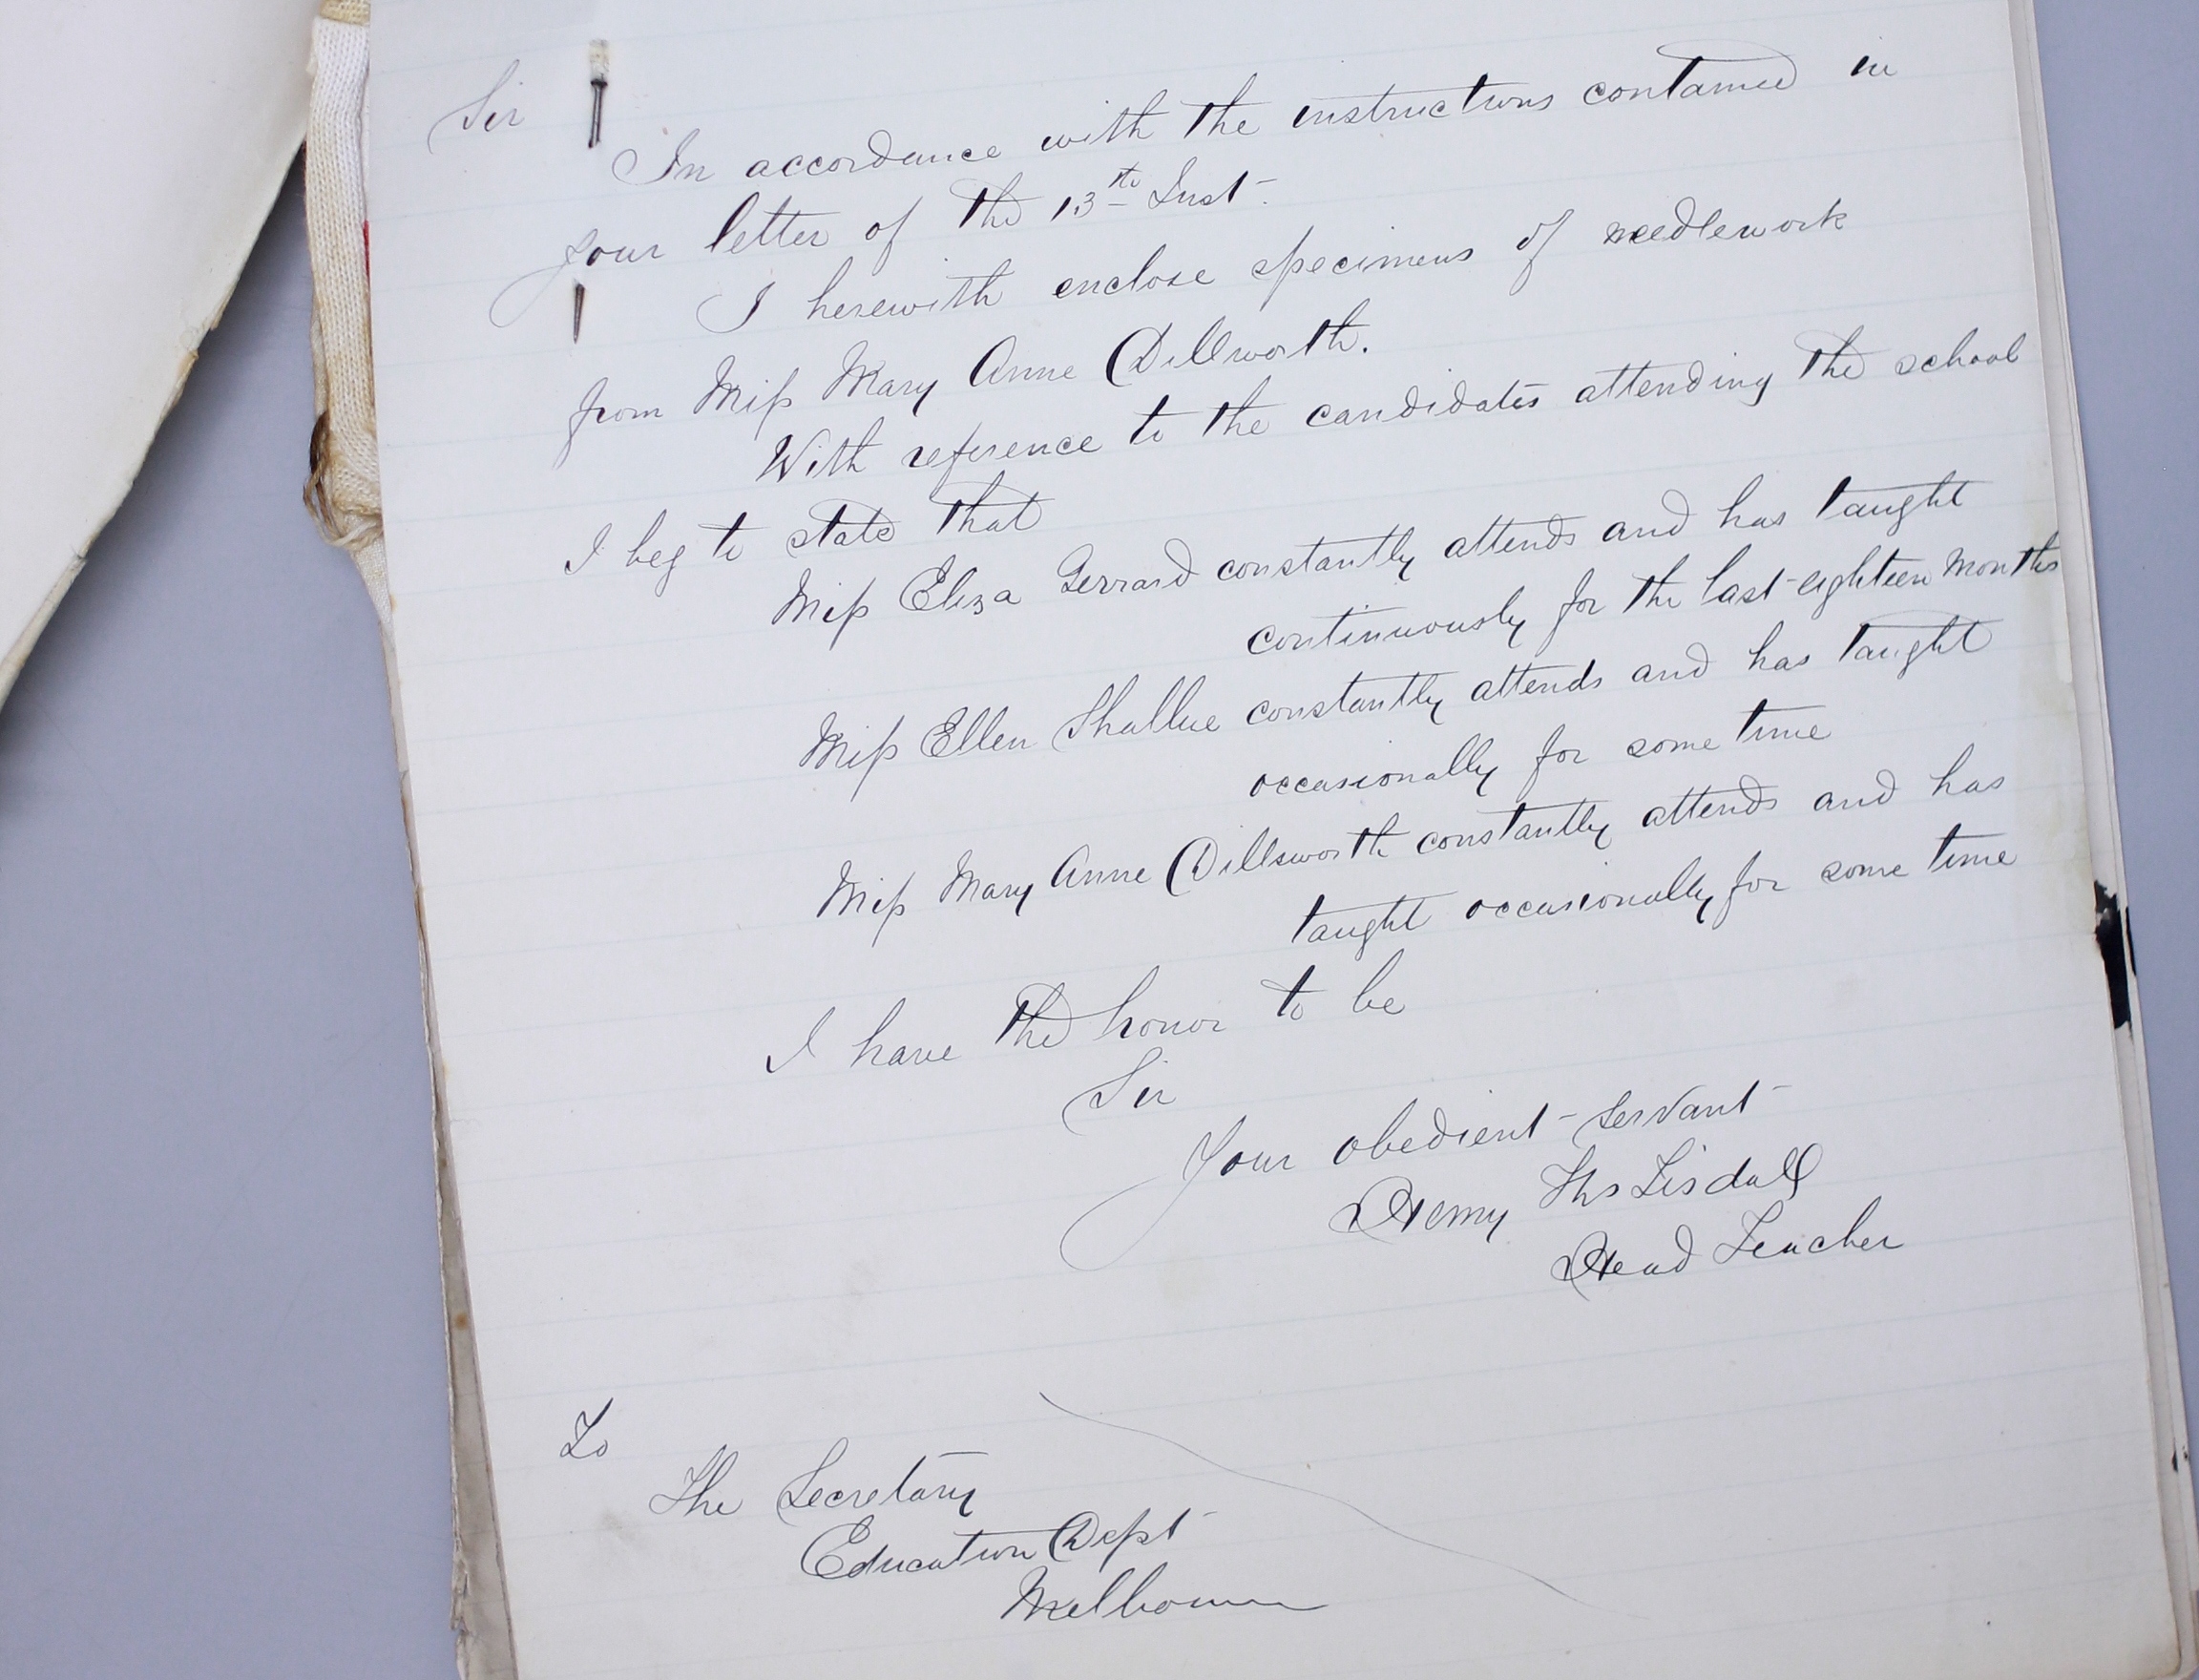 Sir
In accordance with the instructions contained in
your letter of the 13th Inst-
I herewith enclose specimens of needlework
from Miss Mary Anne Dillworth.
With reference to the candidates attending the school
I beg to state that
Miss Eliza Gerrard constantly attends and has taught
continuously for the last eighteen months
Miss Ellen Shallue constantly attends and has taught
occasionally for some time
Miss Mary Anne Dillsworth constantly attends and has
taught occasionally for some time
I have the honor to be
Sir
Your obedient servant
Henry Ths Tisdall
Head Teacher
To
The Secretary
Education Dept
Melbourne